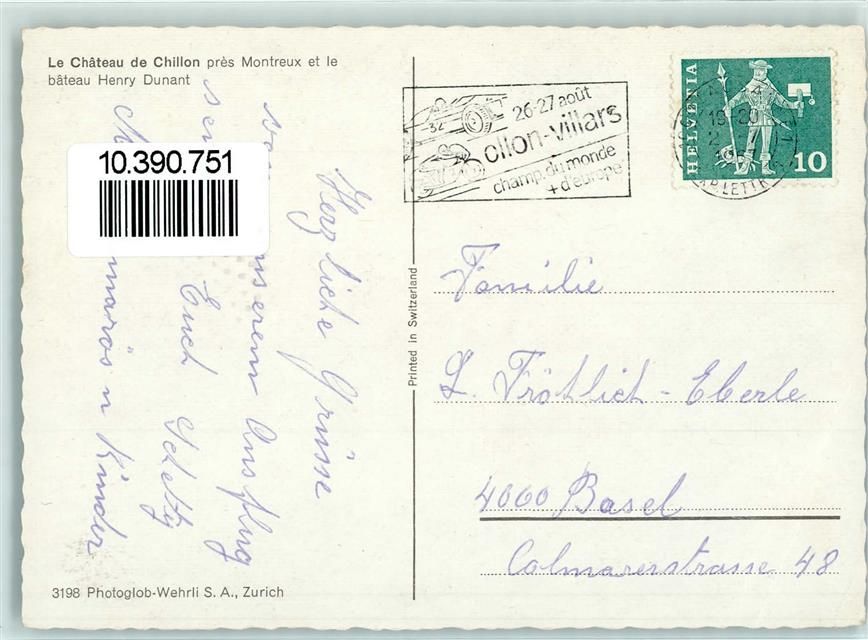 Le Château de Chillon près Montreux et le
bâteau Henry Dunant
10.390.751
Herzliche Grüsse
unserem Ausflug
Euch
u Kinder
3198 Photoglob-Wehrli S. A., Zurich
Printed in Switzerland
26-27 août
ollon-villars
champ. du monde
+ d'europe
HELVETIA
10
Familie
L. Fröhlich - Eberle
4000 Basel
Colmarerstrasse 48